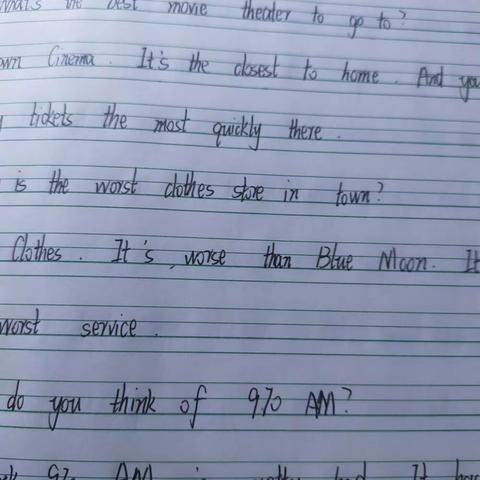 What's the best movie theater to go to?
own Cinema. It's the closest to home. And you
tickets the most quickly there.
is the worst clothes store in town?
Clothes. It's worse than Blue Moon. It
worst service.
do you think of 970 AM?
970 AM is pretty bad. It has